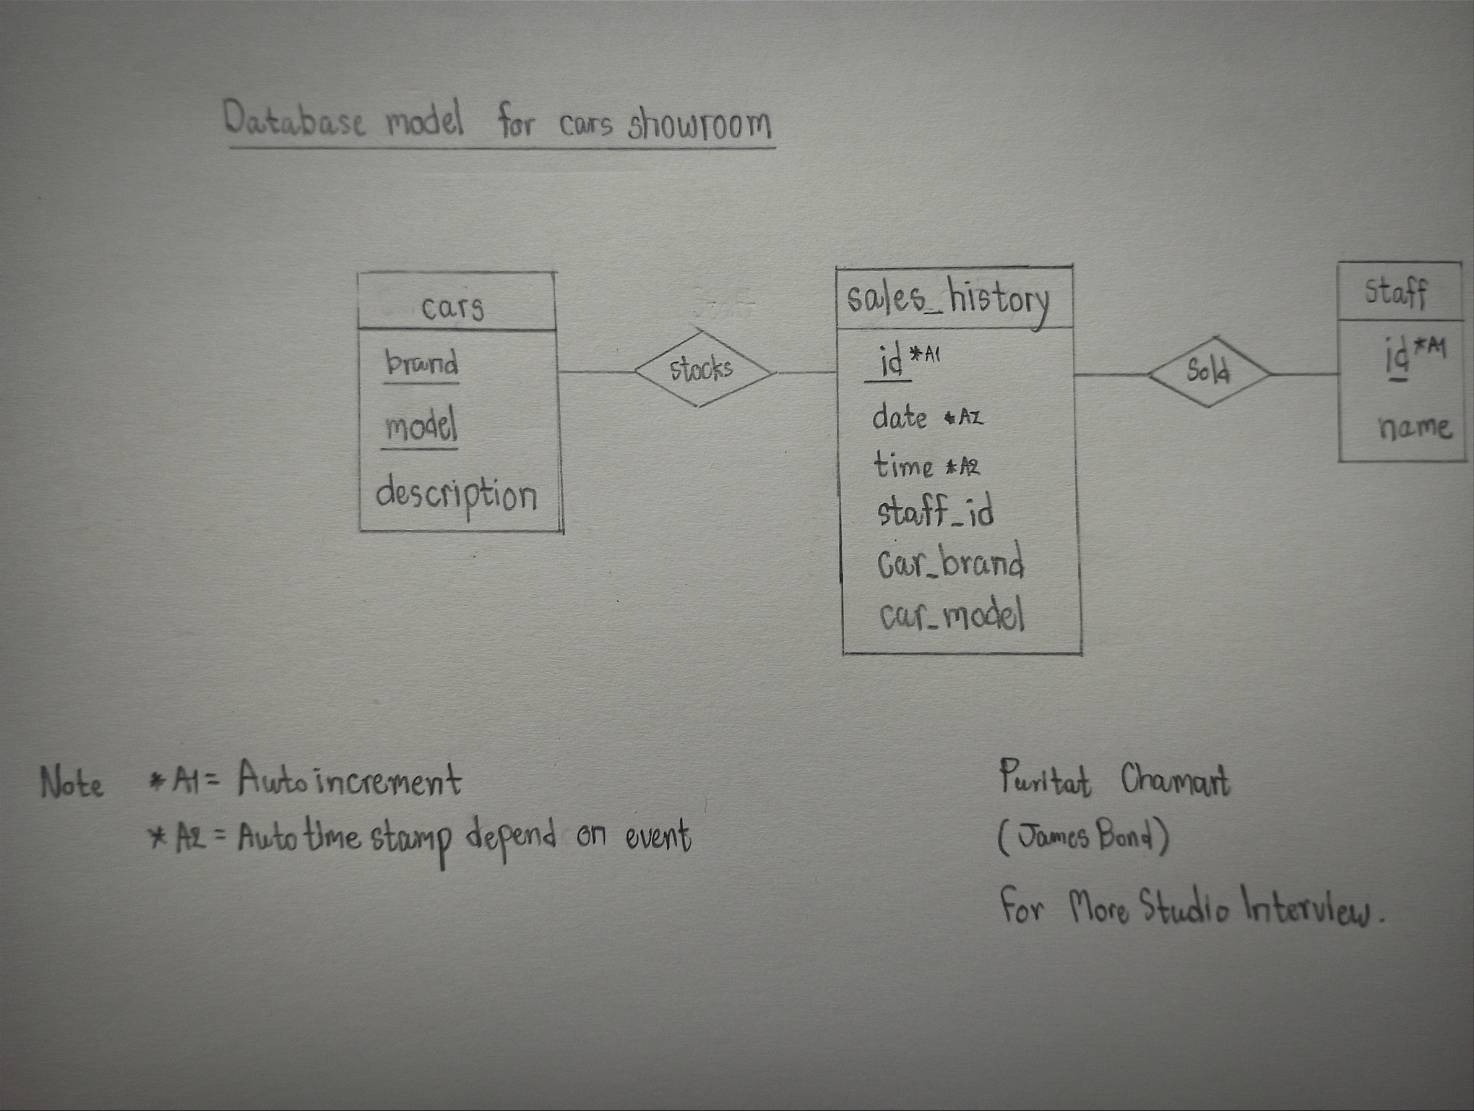 Database model for cars showroom
cars
brand
model
description
stocks
sales_history
id *A1
date *A2
time *A2
staff_id
car_brand
car_model
Sold
staff
id *A1
name
Note *A1 = Auto increment
*A2 = Auto time stamp depend on event
Puritat Chamart
(James Bond)
For More Studio Interview.